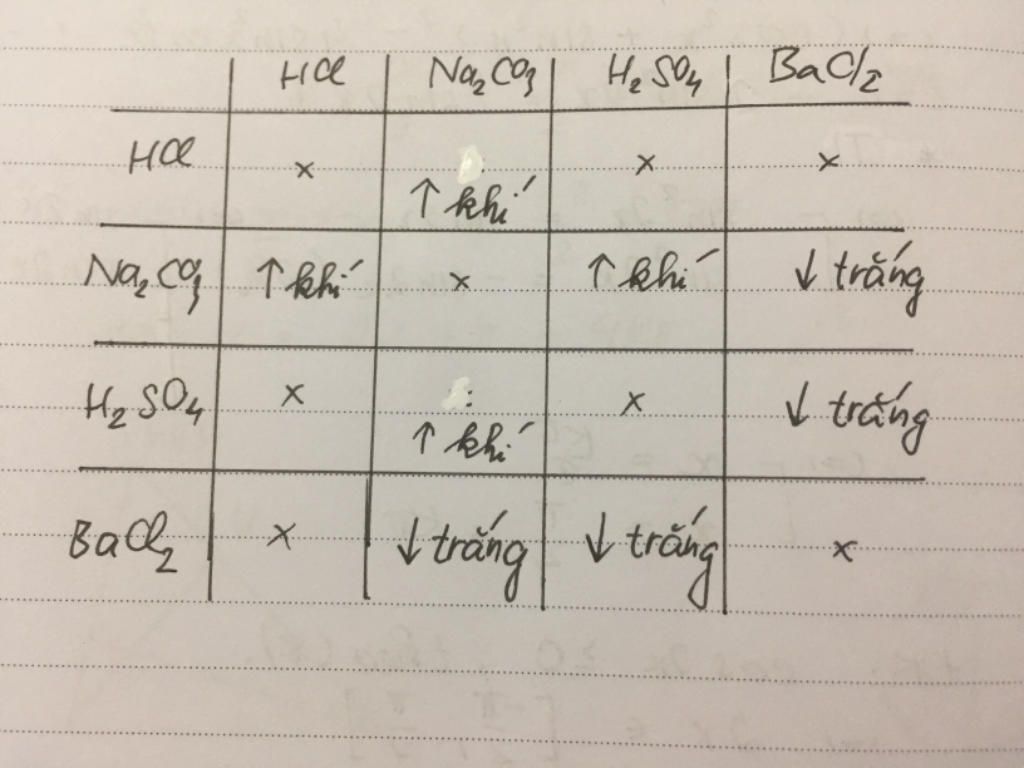 HCl Na₂CO₃ H₂SO₄ BaCl₂
HCl x ↑ khí x x
Na₂CO₃ ↑ khí x ↑ khí ↓ trắng
H₂SO₄ x ↑ khí x ↓ trắng
BaCl₂ x ↓ trắng ↓ trắng x